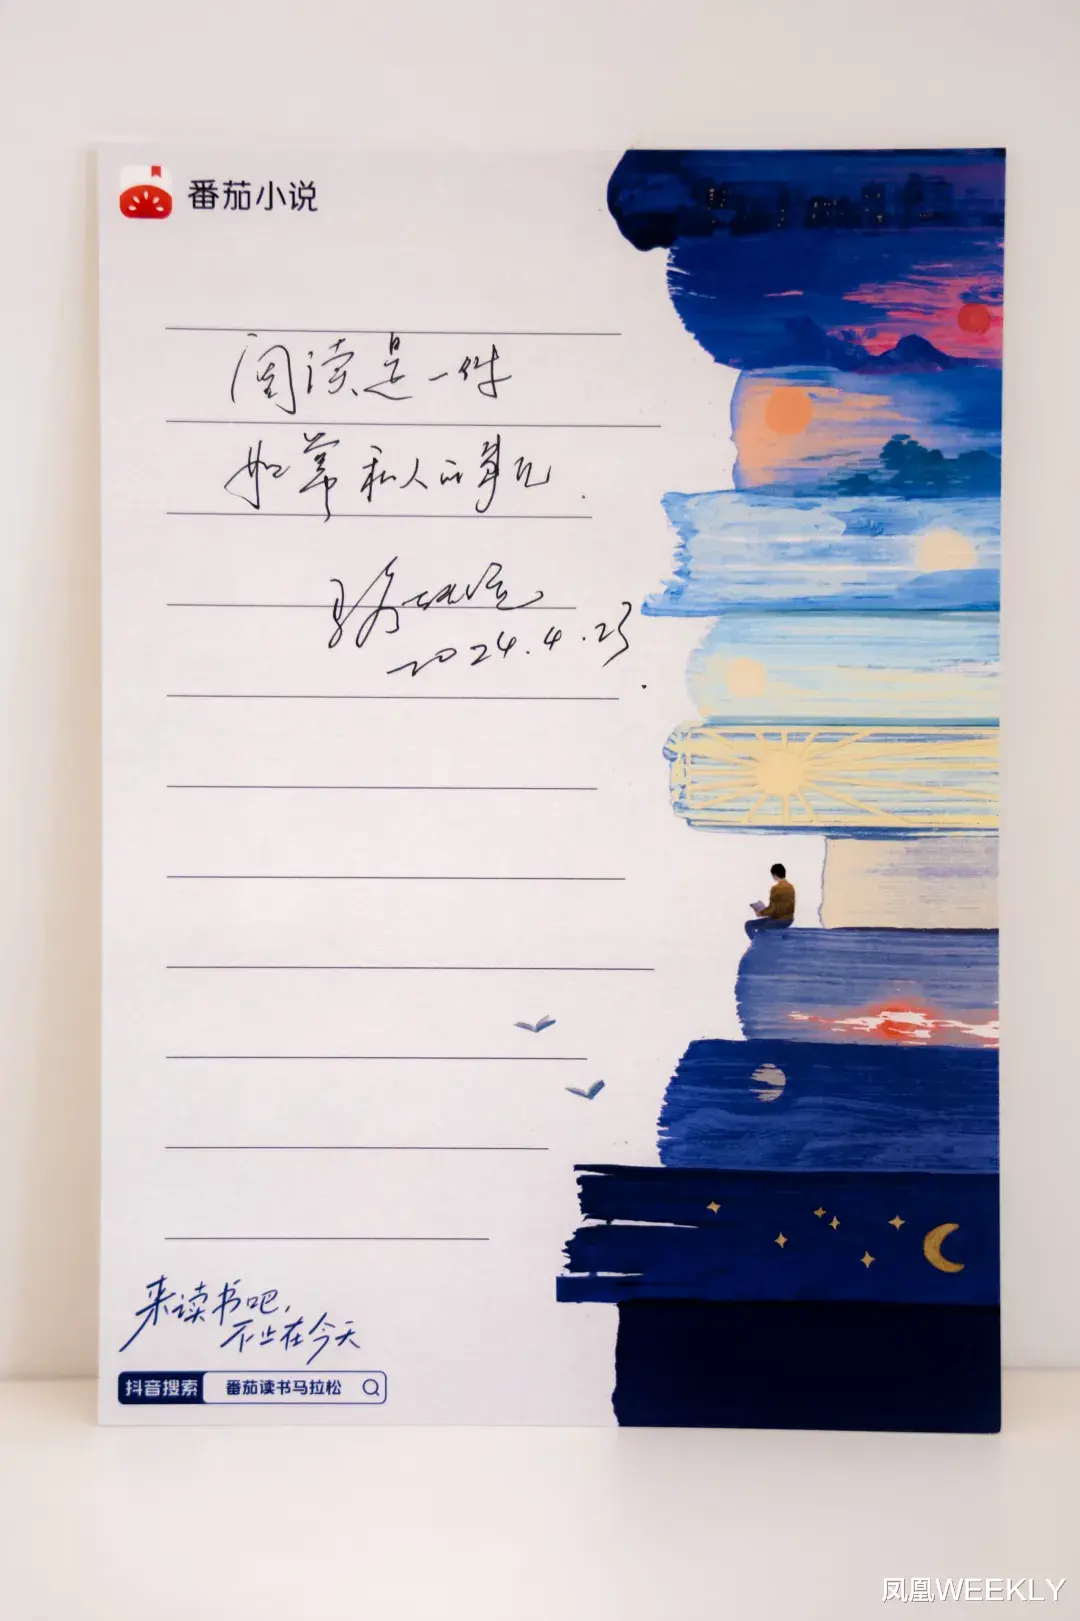 番茄小说
阅读是一件
非常私人的事儿.
2024.4.23.
来读书吧,
不止在今天
抖音搜索 番茄读书马拉松
凤凰WEEKLY